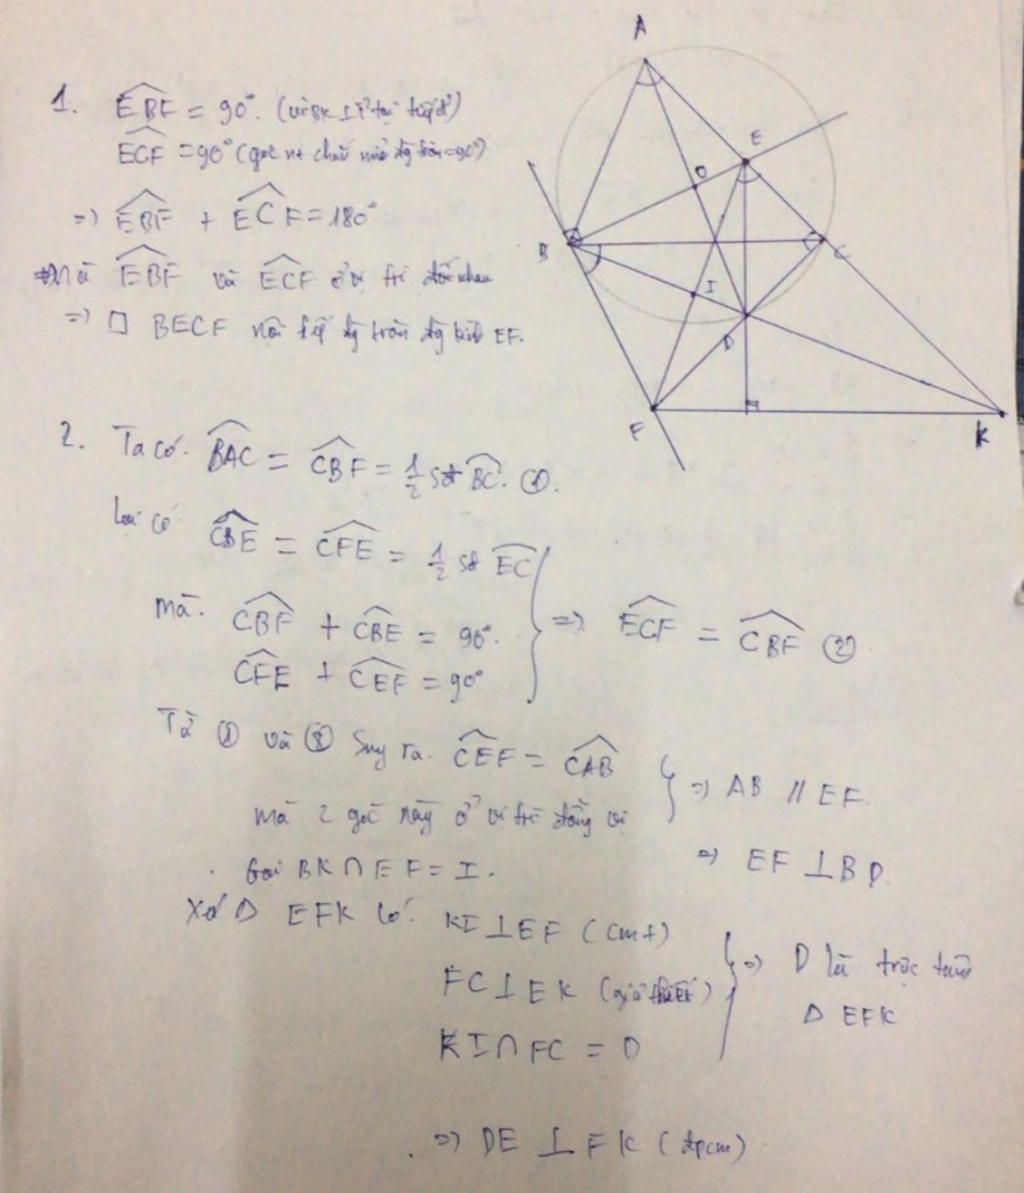 1. EBF = 90°.
ECF = 90° (góc nt chắn nửa đg tròn = 90°)
=) EBF + ECF = 180°
Mà EBF và ECF ở vị trí đối nhau
=) □ BECF nội tiếp đg tròn đg kính EF.
2. Ta có. BAC = CBF = 1/2 sđ BC. ①.
Lại có CBE = CFE = 1/2 sđ EC
mà. CBF + CBE = 90°.
CFE + CEF = 90°
=) ECF = CBF ②
Từ ① và ② Suy ra. CEF = CAB
mà 2 góc này ở vị trí đồng vị
=) AB // EF.
=) EF ⊥ BD.
Gọi BK ∩ EF = I.
Xét Δ EFK có: KI ⊥ EF (cmt)
FC ⊥ EK (giả thiết)
KI ∩ FC = D
=) D là trực tâm
Δ EFK
=) DE ⊥ FK (đpcm)
A
E
O
B
C
I
D
F
K